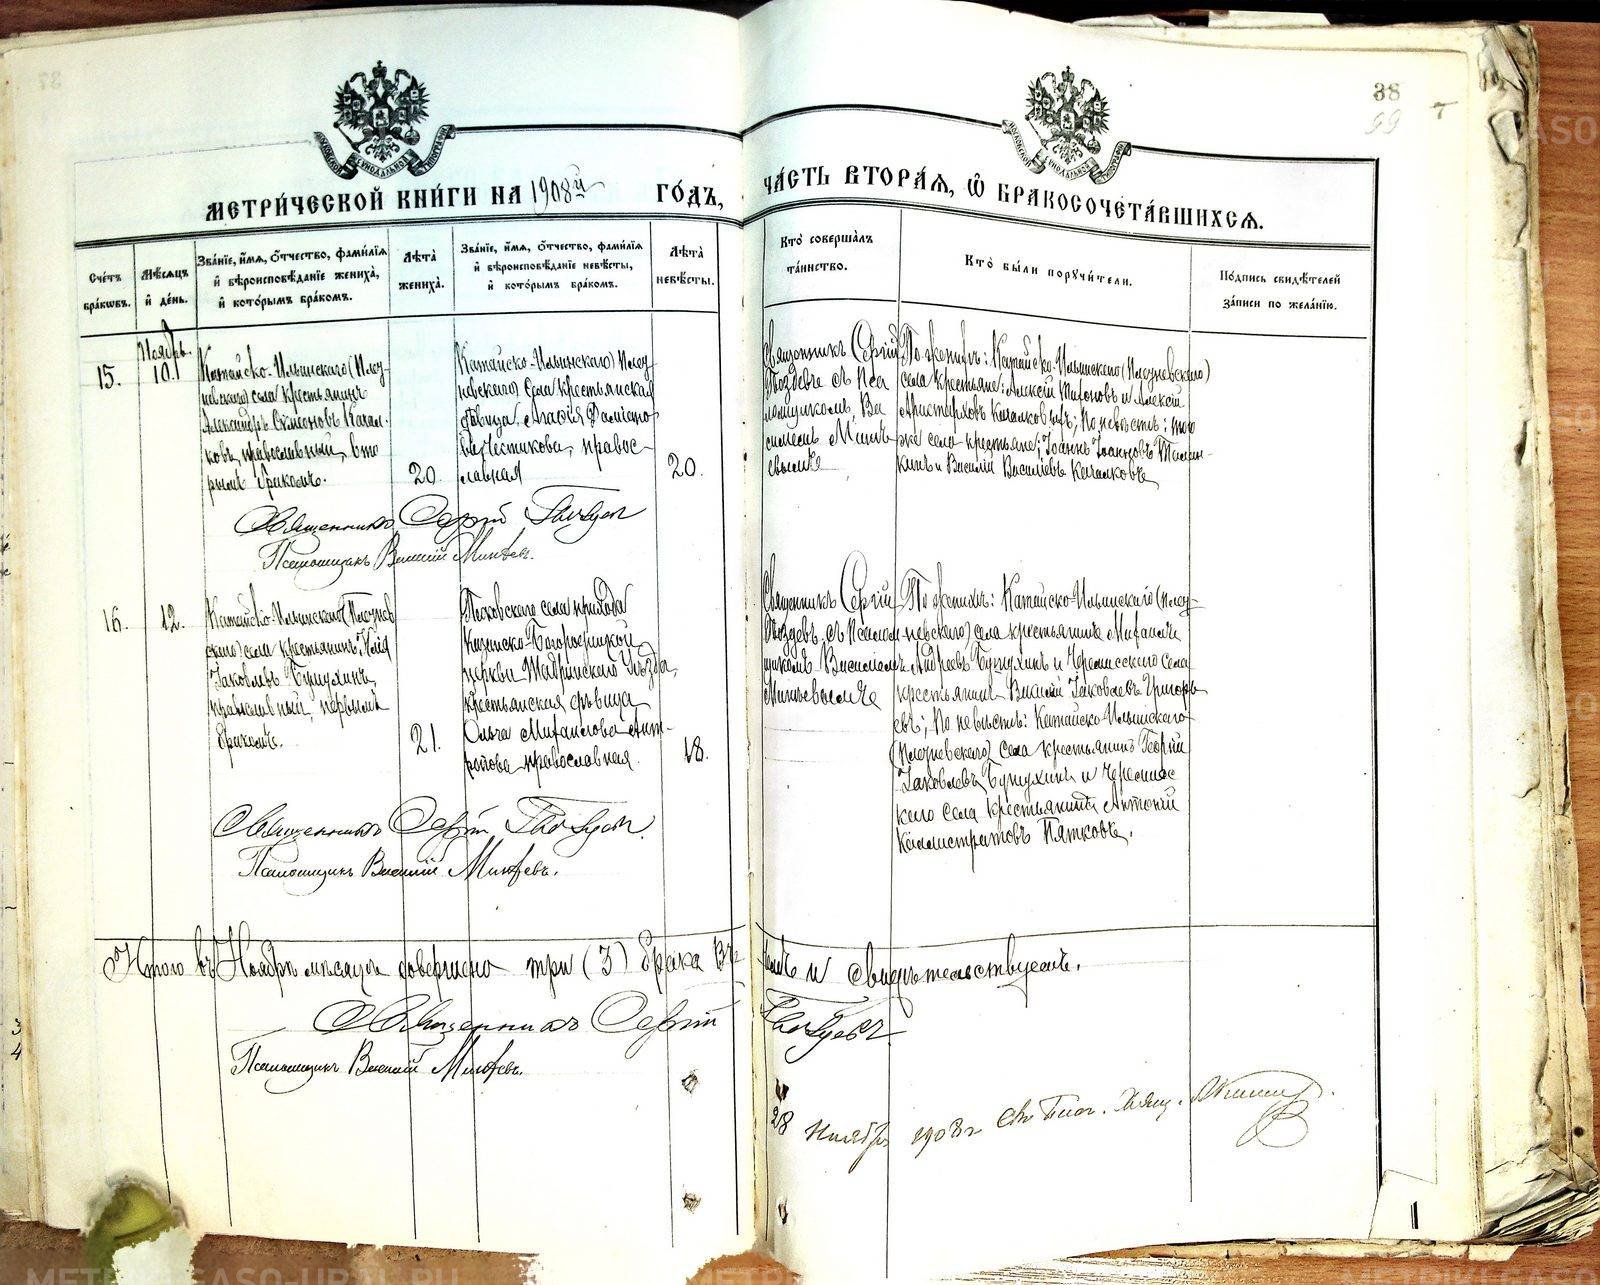 38
99
МЕТРИ́ЧЕСКОЙ КНИ́ГИ НА 1908й ГО́ДЪ,
ЧА́СТЬ ВТОРА́Я, Ѡ҆ БРАКОСОЧЕТА́ВШИХСЯ.
Сче́тъ бра́кѡвъ.
Мѣ́сяцъ и҆ де́нь.
Зва́нїе, и҆́мя, ѻ҆́тчество, фамѝлїя
и҆ вѣроисповѣ́данїе жениха̀,
и҆ кото́рымъ бра́комъ.
Лѣ́та жениха̀.
Зва́нїе, и҆́мя, ѻ҆́тчество, фамѝлїя
и҆ вѣроисповѣ́данїе невѣ́сты,
и҆ кото́рымъ бра́комъ.
Лѣ́та невѣ́сты.
Кто̀ соверша́лъ
та́инство.
Кто̀ бы́ли порꙋчи́тели.
По́дпись свидѣ́телей
за́писи по жела́нїю.
15.
Ноябрь.
10.
Катайско-Ильинскаго (Плоз-
невскаго) села крестьянинъ
Александръ Симеоновъ Качал-
ковъ, православный, вто
рымъ бракомъ.
20.
Катайско-Ильинскаго) Плоз-
невскаго) села крестьянская
дѣвица Агафія Даміано-
ва Честикова, правос-
лавная
20.
Священникъ Сергій
Гвоздевъ съ Пса
ломщикомъ Ва
силіемъ Минѣ
евымъ
По женихѣ: Катайско-Ильинскаго (Плозневскаго)
села крестьяне: Алексій Тихоновъ и Алексій
Аристарховъ Качалковы; По невѣстѣ: того
же села крестьяне: Іоаннъ Іоанновъ
и Василій Васильевъ Качалковъ
Священникъ Сергій Гвоздевъ
Псаломщикъ Василій Минѣевъ.
16.
12.
Катайско-Ильинскаго (Плознев
скаго) села крестьянинъ Илія
Іаковлевъ Бунухинъ,
православный, первымъ
бракомъ.
21.
Песковскаго села прихода
Казанско-Богородицкой
церкви Шадринскаго Уѣзда,
крестьянская дѣвица
Ольга Михаилова Ант-
ропова православная.
18.
Священникъ Сергій
Гвоздевъ, съ Псалом-
щикомъ Василіемъ
Минѣевымъ
По женихѣ: Катайско-Ильинскаго (Плоз-
невскаго) села крестьянинъ Михаилъ
Андреевъ Бунухинъ и Черемисскаго села
крестьянинъ Василій Іаковлевъ Григорь
евъ; По невѣстѣ: Катайско-Ильинскаго
(Плозневскаго) села крестьянинъ Георгій
Іаковлевъ Бунухинъ и Черемисс
каго села крестьянинъ Антоній
Каллистратовъ Пятковъ.
Священникъ Сергій Гвоздевъ.
Псаломщикъ Василій Минѣевъ.
Итого въ Ноябрѣ мѣсяцѣ совершено три (3) брака въ
чемъ и свидѣтельствуемъ.
Священникъ Сергій Гвоздевъ.
Псаломщикъ Василій Минѣевъ.
28 Ноября 1908 г.